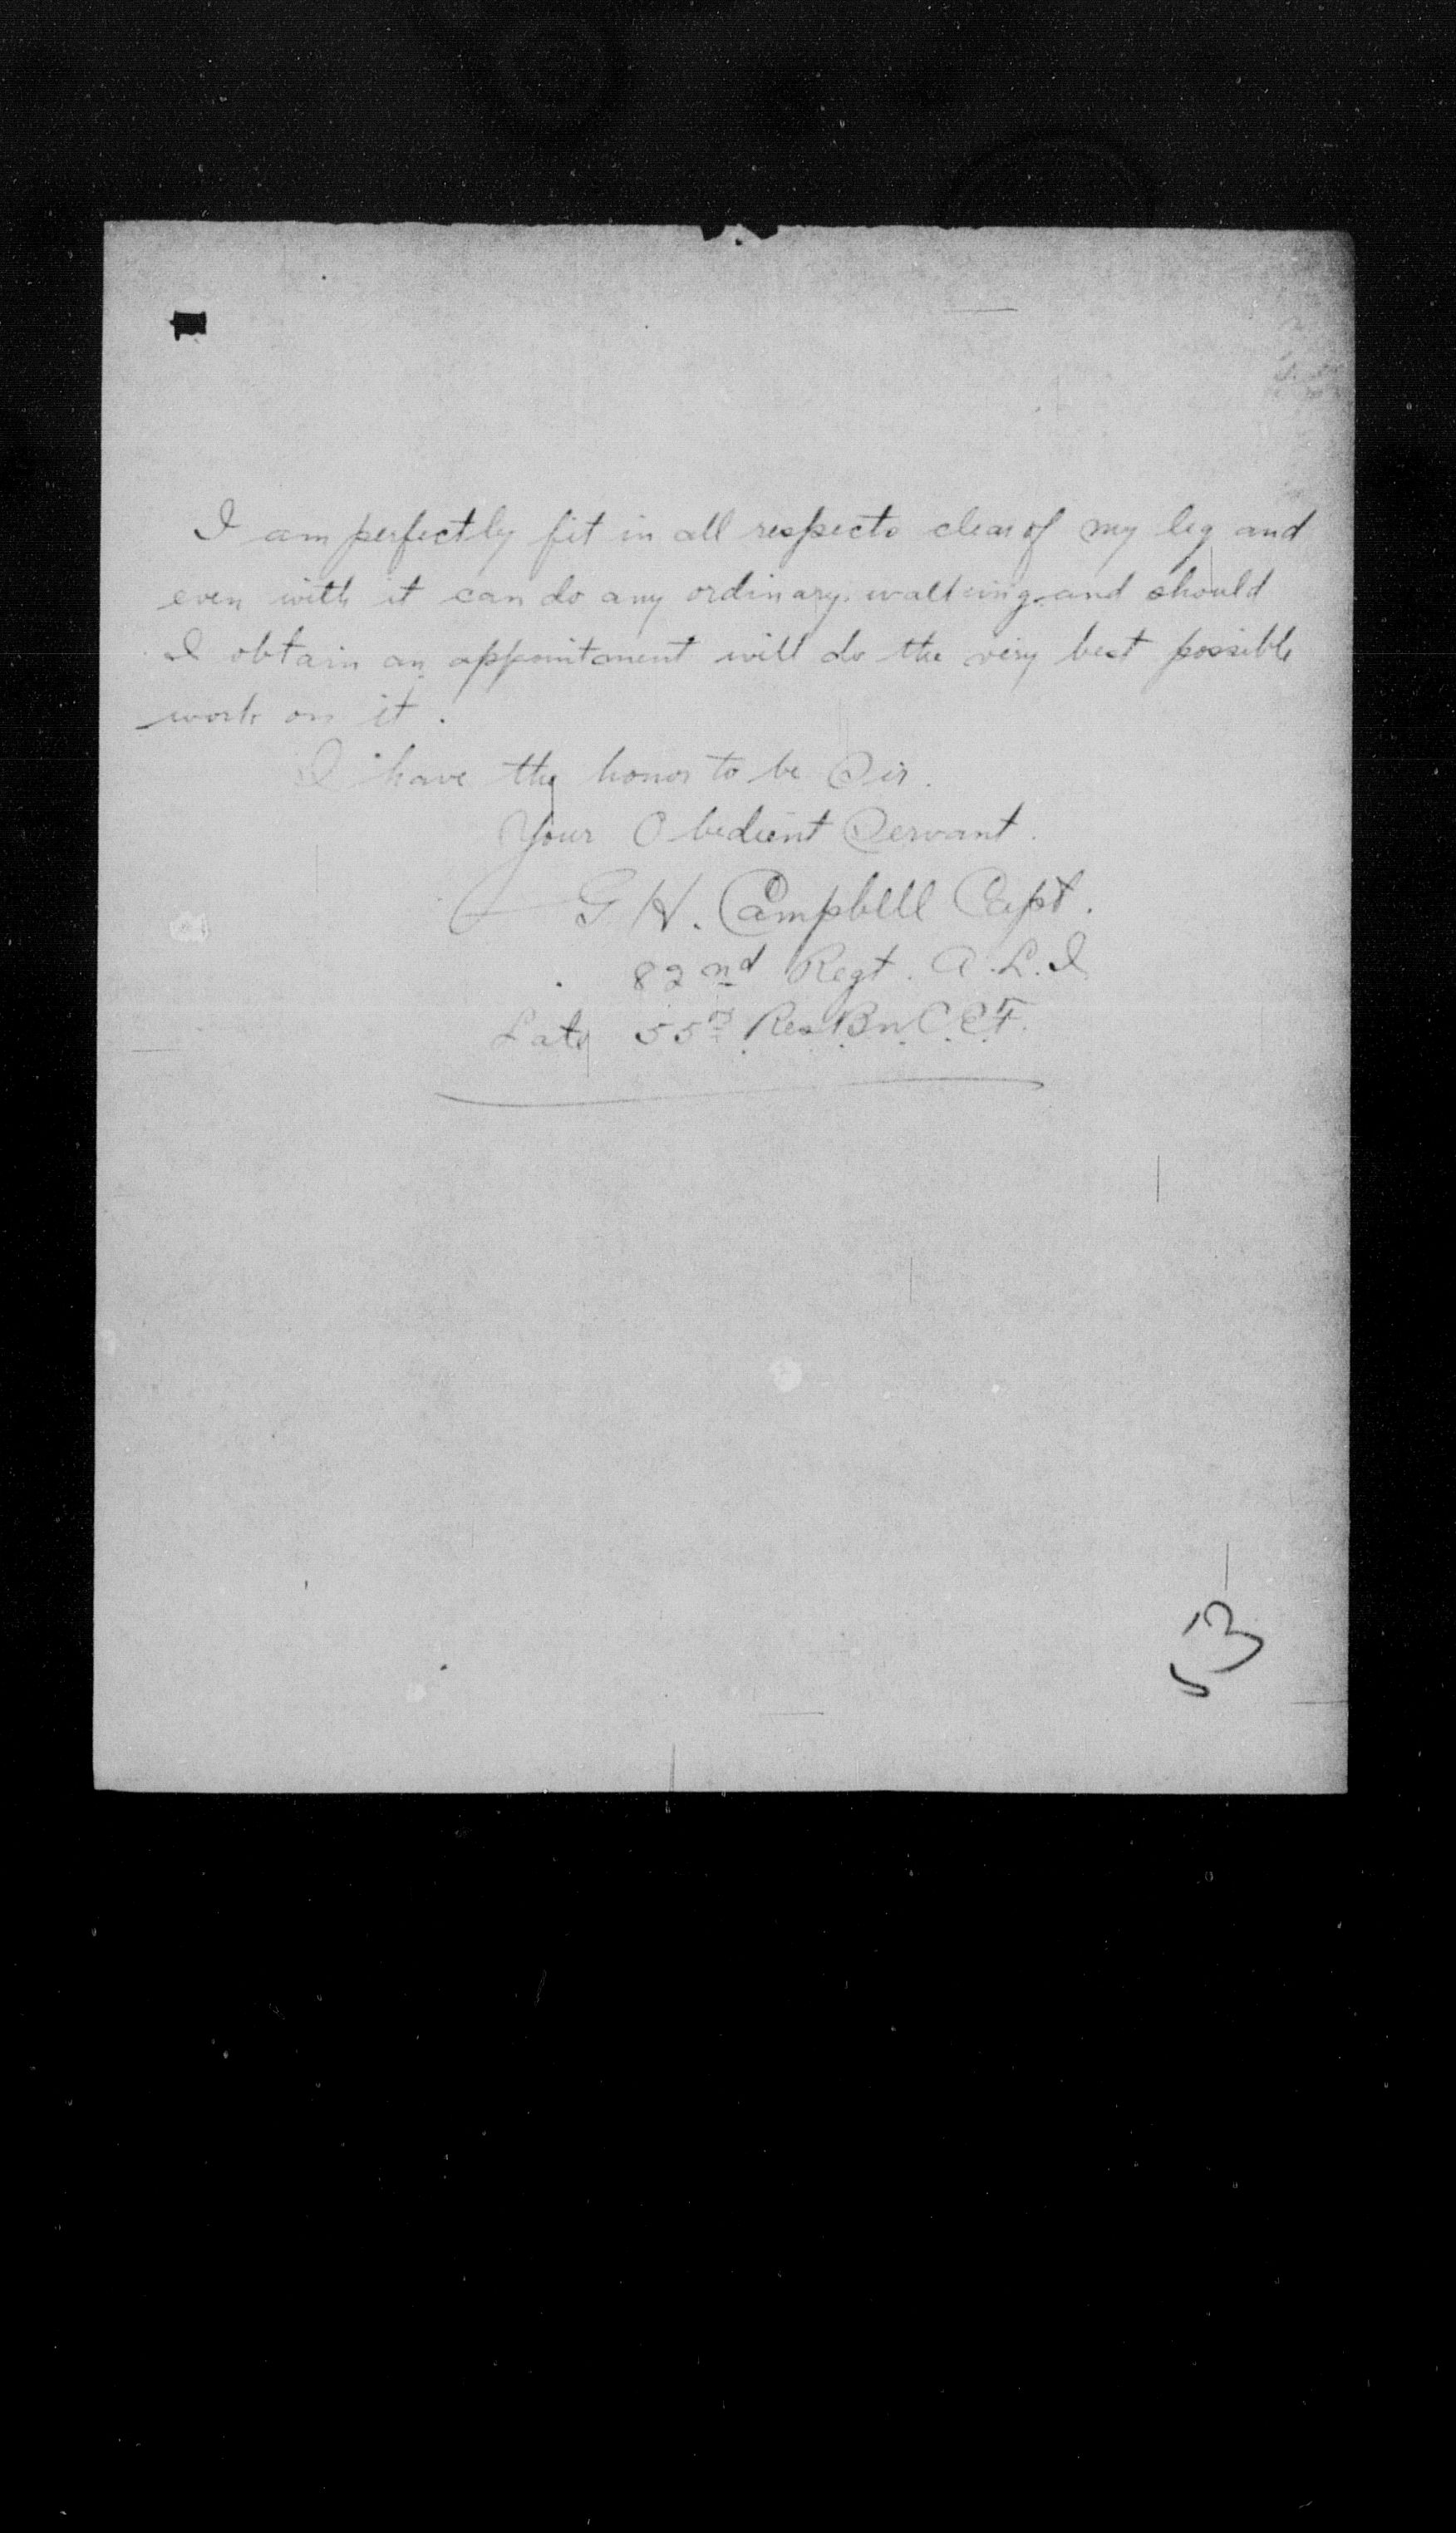 I am perfectly fit in all respects clear of my leg and
even with it can do any ordinary walking and should
I obtain an appointment will do the very best possible
work on it.
I have the honor to be Sir.
Your Obedient Servant.
G H. Campbell Capt.
82nd Regt. A. L. I
Late 55th Res. Bn. C. E. F.
53